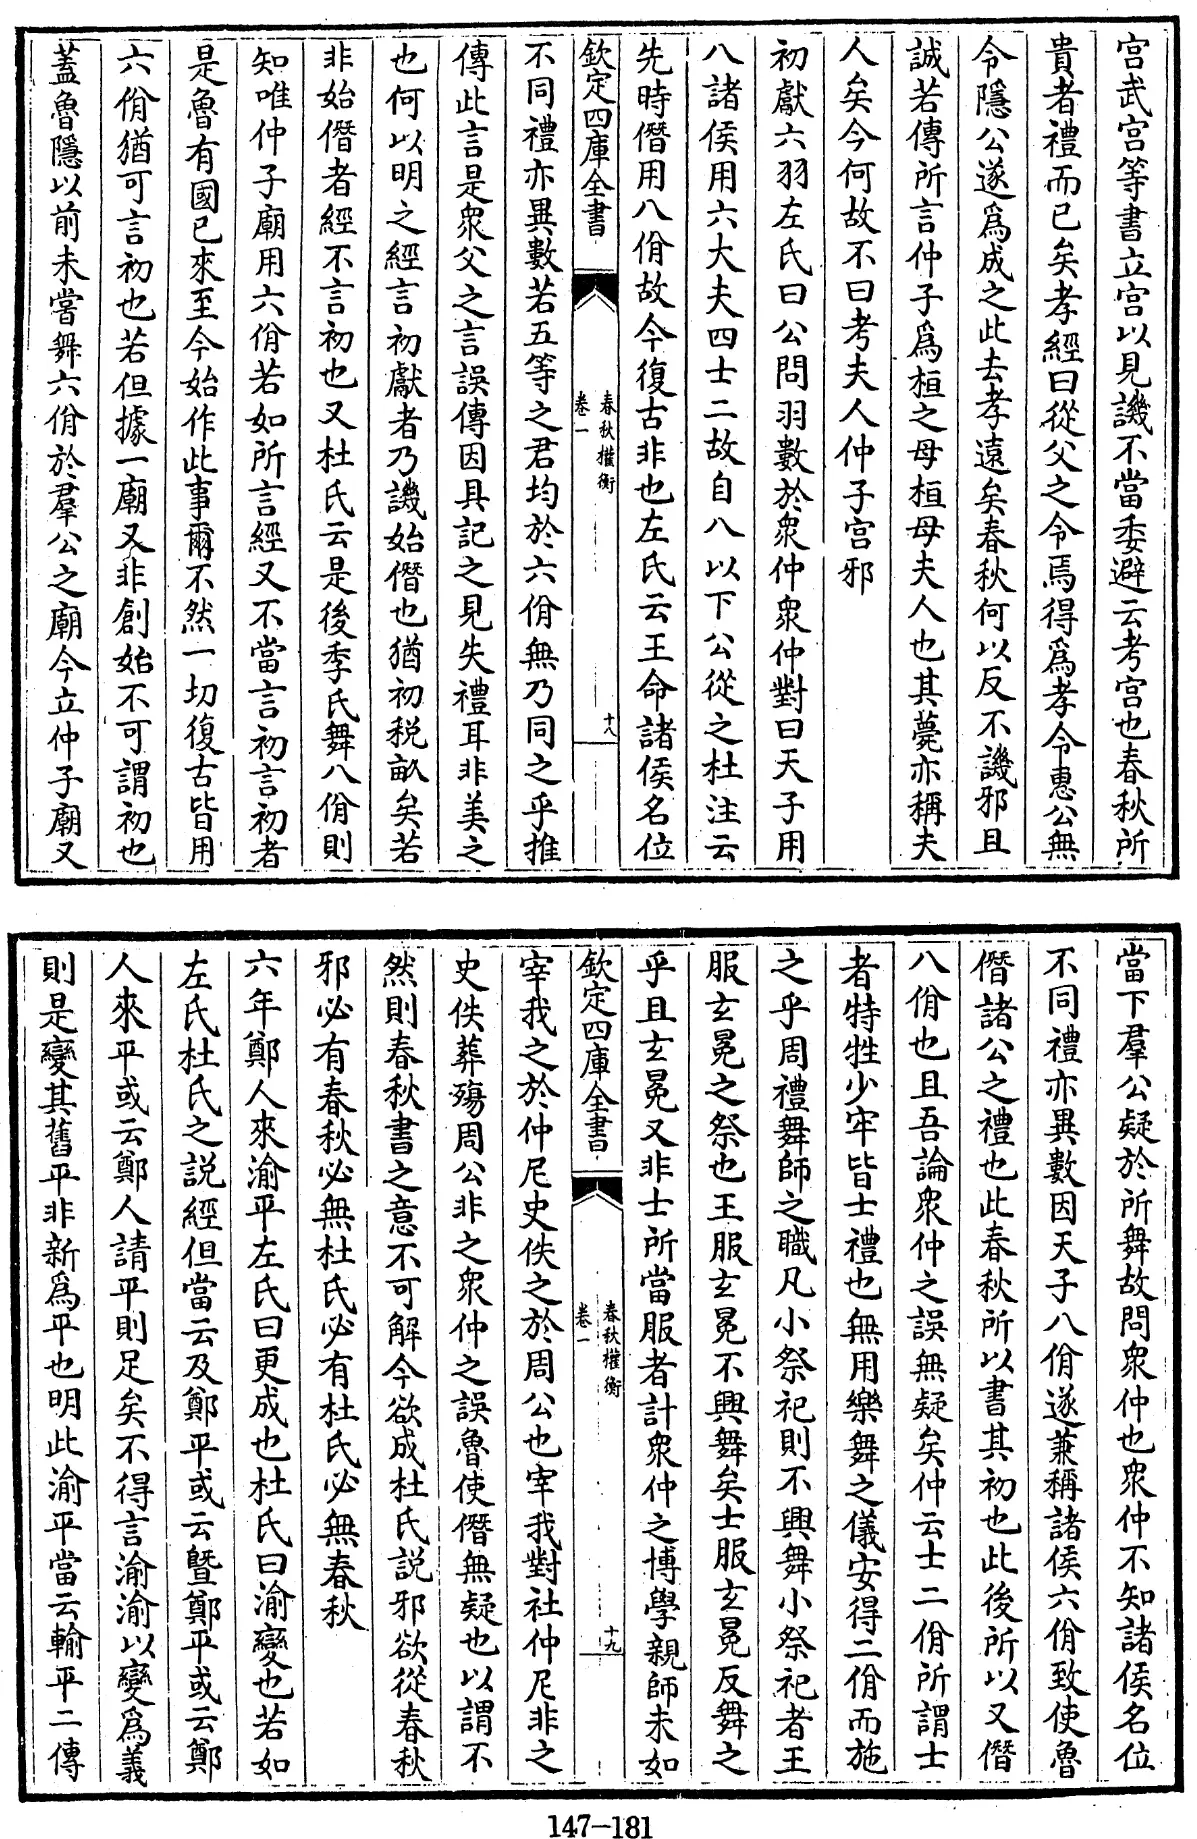 宫武宫等書立宫以見譏不當委避云考宫也春秋所
貴者禮而已矣孝經曰從父之令焉得爲孝令惠公無
令隱公遂爲成之此去孝遠矣春秋何以反不譏邪且
誠若傳所言仲子爲桓之母桓母夫人也其薨亦稱夫
人矣今何故不曰考夫人仲子宫邪
初獻六羽左氏曰公問羽數於衆仲衆仲對曰天子用
八諸侯用六大夫四士二故自八以下公從之杜注云
先時僭用八佾故今復古非也左氏云王命諸侯名位
欽定四庫全書
春秋權衡
卷一
十八
不同禮亦異數若五等之君均於六佾無乃同之乎推
傳此言是衆父之言誤傳因具記之見失禮耳非美之
也何以明之經言初獻者乃譏始僭也猶初税畝矣若
非始僭者經不言初也又杜氏云是後季氏舞八佾則
知唯仲子廟用六佾若如所言經又不當言初言初者
是魯有國已來至今始作此事爾不然一切復古皆用
六佾猶可言初也若但據一廟又非創始不可謂初也
蓋魯隱以前未嘗舞六佾於羣公之廟今立仲子廟又
當下羣公疑於所舞故問衆仲也衆仲不知諸侯名位
不同禮亦異數因天子八佾遂兼稱諸侯六佾致使魯
僭諸公之禮也此春秋所以書其初也此後所以又僭
八佾也且吾論衆仲之誤無疑矣仲云士二佾所謂士
者特牲少牢皆士禮也無用樂舞之儀安得二佾而施
之乎周禮舞師之職凡小祭祀則不興舞小祭祀者王
服玄冕之祭也王服玄冕不興舞矣士服玄冕反舞之
乎且玄冕又非士所當服者計衆仲之博學親師未如
欽定四庫全書
春秋權衡
卷一
十九
宰我之於仲尼史佚之於周公也宰我對社仲尼非之
史佚葬殤周公非之衆仲之誤魯使僭無疑也以謂不
然則春秋書之意不可解今欲成杜氏説邪欲從春秋
邪必有春秋必無杜氏必有杜氏必無春秋
六年鄭人來渝平左氏曰更成也杜氏曰渝變也若如
左氏杜氏之説經但當云及鄭平或云暨鄭平或云鄭
人來平或云鄭人請平則足矣不得言渝渝以變爲義
則是變其舊平非新爲平也明此渝平當云輸平二傳
147—181